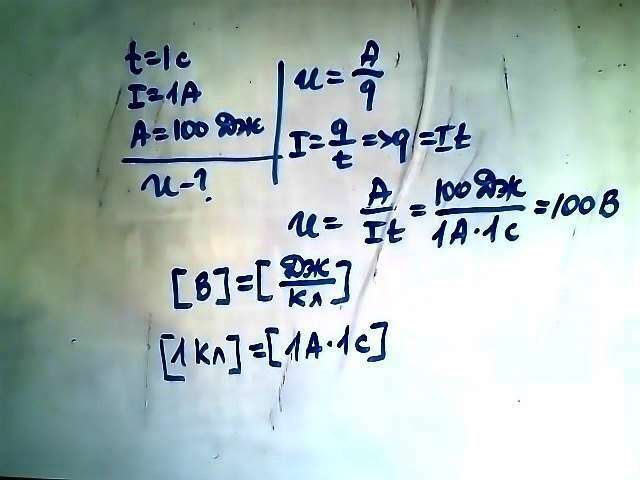 t=1c
I=1A
A=100 Дж
u-?
u=A/q
I=q/t=>q=It
u=A/It=100 Дж/1A·1c=100 В
[В]=[Дж/Кл]
[1 Кл]=[1A·1c]